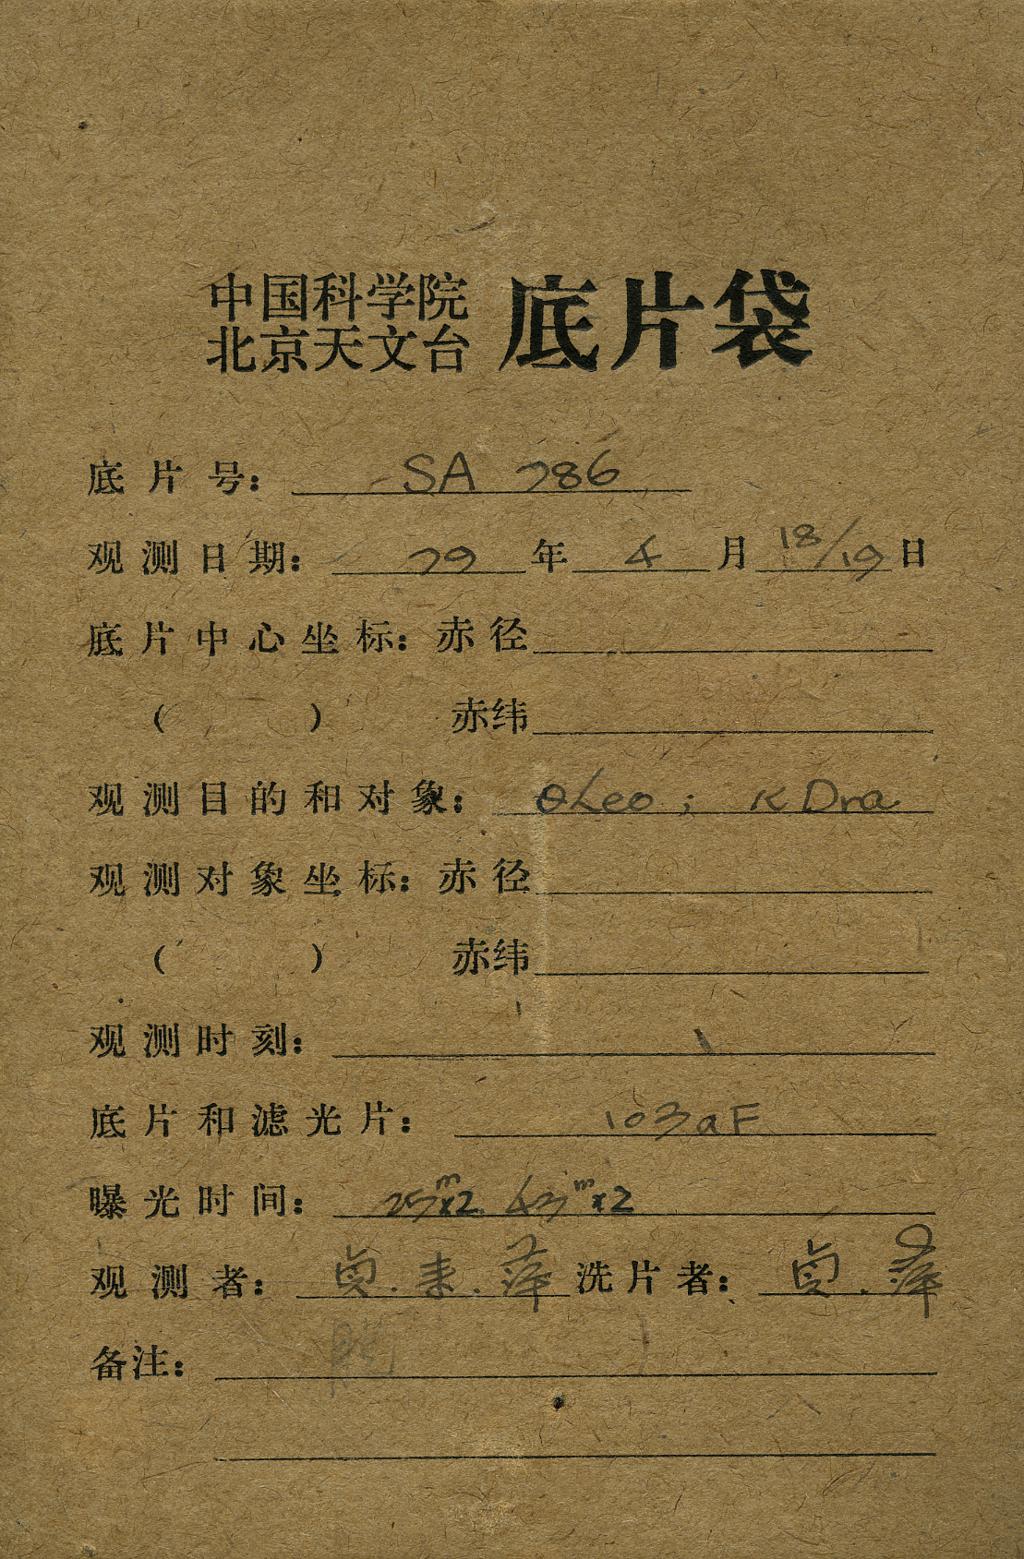 中国科学院
北京天文台 底片袋
底片号: SA 786
观测日期: 79 年 4 月 18/19 日
底片中心坐标: 赤径
( ) 赤纬
观测目的和对象: θLeo; κ Dra
观测对象坐标: 赤径
( ) 赤纬
观测时刻:
底片和滤光片: 103aF
曝光时间: 25ᵐx2. 43ᵐx2
观测者: 贞. 萍 洗片者: 贞. 萍
备注: